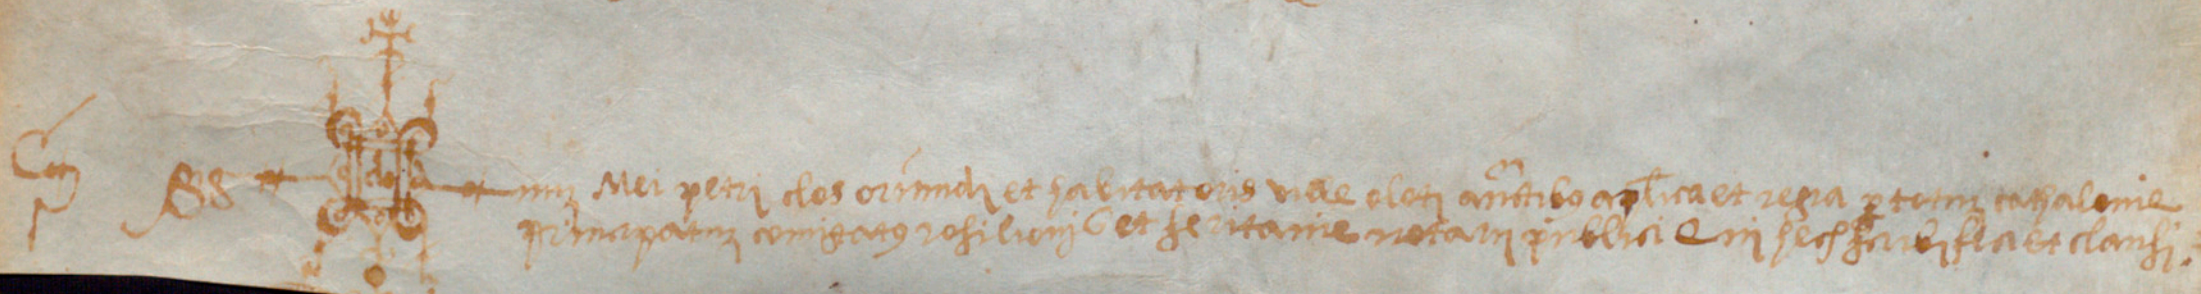 Sig num Mei petri clos oriundi et habitatoris ville oloti auctibus aplica et regia p totum cathalonie
principatum comitatus rosilionis et seritanie notarii publici qui hec scribi feci et clausi.